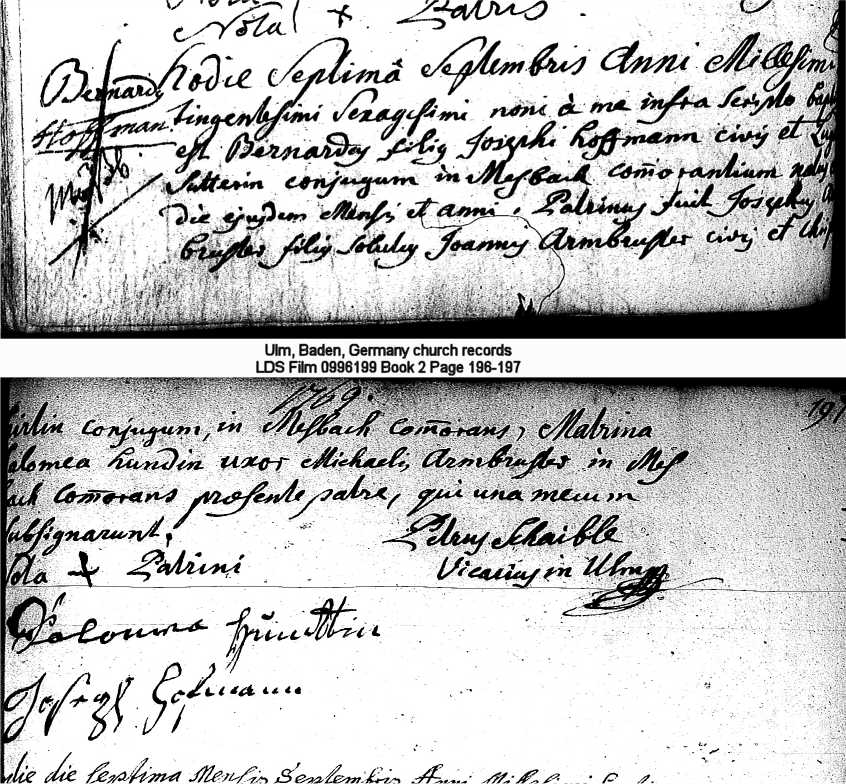 Nota + Patris.
Bernardus hodie Septimâ Septembris Anni Millesimi
Hoffmann tingentesimi Sexagesimi noni à me infra Scripto bap
est Bernardus filius Josephi hoffmann civis et
Sutterin conjugum in Mesbach com̄orantium natus
die ejusdem Mensis et anni. Patrinus fuit Josephus
bruster filius solutus Joannis Armbruster civis et
Ulm, Baden, Germany church records
LDS Film 0996199 Book 2 Page 196-197
1769. 197
irlin conjugum, in Mesbach com̄orans, Matrina
alomea hundin uxor Michaelis Armbruster in Mes
ach com̄orans præsente patre, qui una mecum
subsignarunt.
Petrus Schaible
Nota + Patrini Vicarius in Ulm
Salomea Hündtin
Joseph Hofmann
die septima Mensis Septembris Anni Millesimi